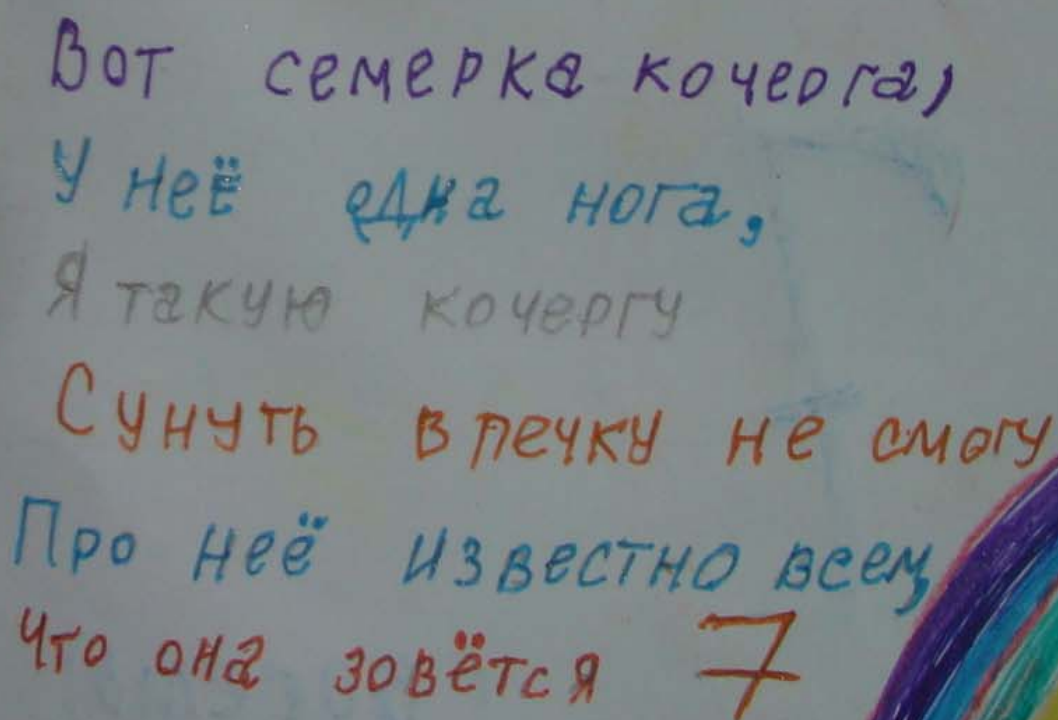 Вот семерка кочерга,
У неё одна нога,
Я такую кочергу
Сунуть в печку не смогу
Про неё известно всем,
Что она зовётся 7